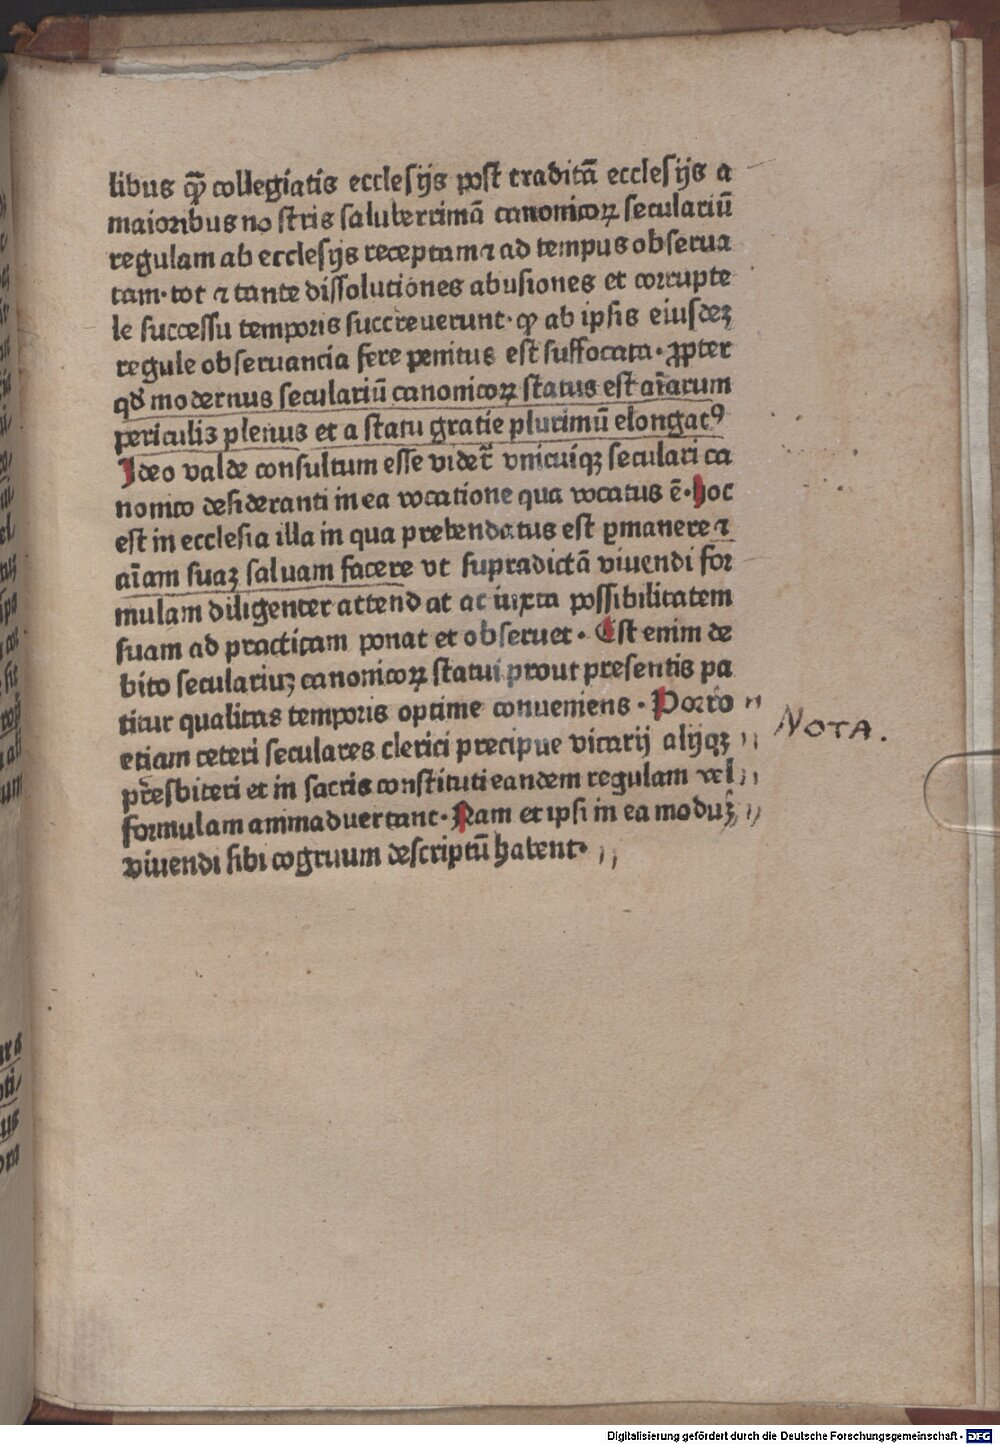 libus qꝫ collegiatis ecclesijs post traditā ecclesijs a
maioribus nostris saluberrimā canonicoꝝ seculariū
regulam ab ecclesijs receptam ⁊ ad tempus obserua
tam· tot ⁊ tante dissolutiones abusiones et corrupte
le successu temporis succreuerunt· ꝙ ab ipsis eiusdeꝫ
regule obseruancia fere penitus est suffocata· ꝓpter
qđ modernus seculariū canonicoꝝ status est aīarum
periculis plenus et a statu gratie plurimū elongatꝰ
Ideo valde consultum esse videt᷑ vnicuiqꝫ seculari ca
nonico desideranti in ea vocatione qua vocatus ē· hoc
est in ecclesia illa in qua prebendatus est ꝑmanere ⁊
aīam suaꝫ saluam facere vt supradictā viuendi for
mulam diligenter attendat ac iuxta possibilitatem
suam ad practicam ponat et obseruet· Est enim de
bito seculariuꝫ canonicoꝝ statui prout presentis pa
titur qualitas temporis optime conueniens· Porro
NOTA.
etiam ceteri seculares clerici precipue vicarij alijqꝫ
p̄resbiteri et in sacris constituti eandem regulam vel
formulam animaduertant· Nam et ipsi in ea moduꝫ
viuendi sibi cogruum descriptū habent·
Digitalisierung gefördert durch die Deutsche Forschungsgemeinschaft - DFG